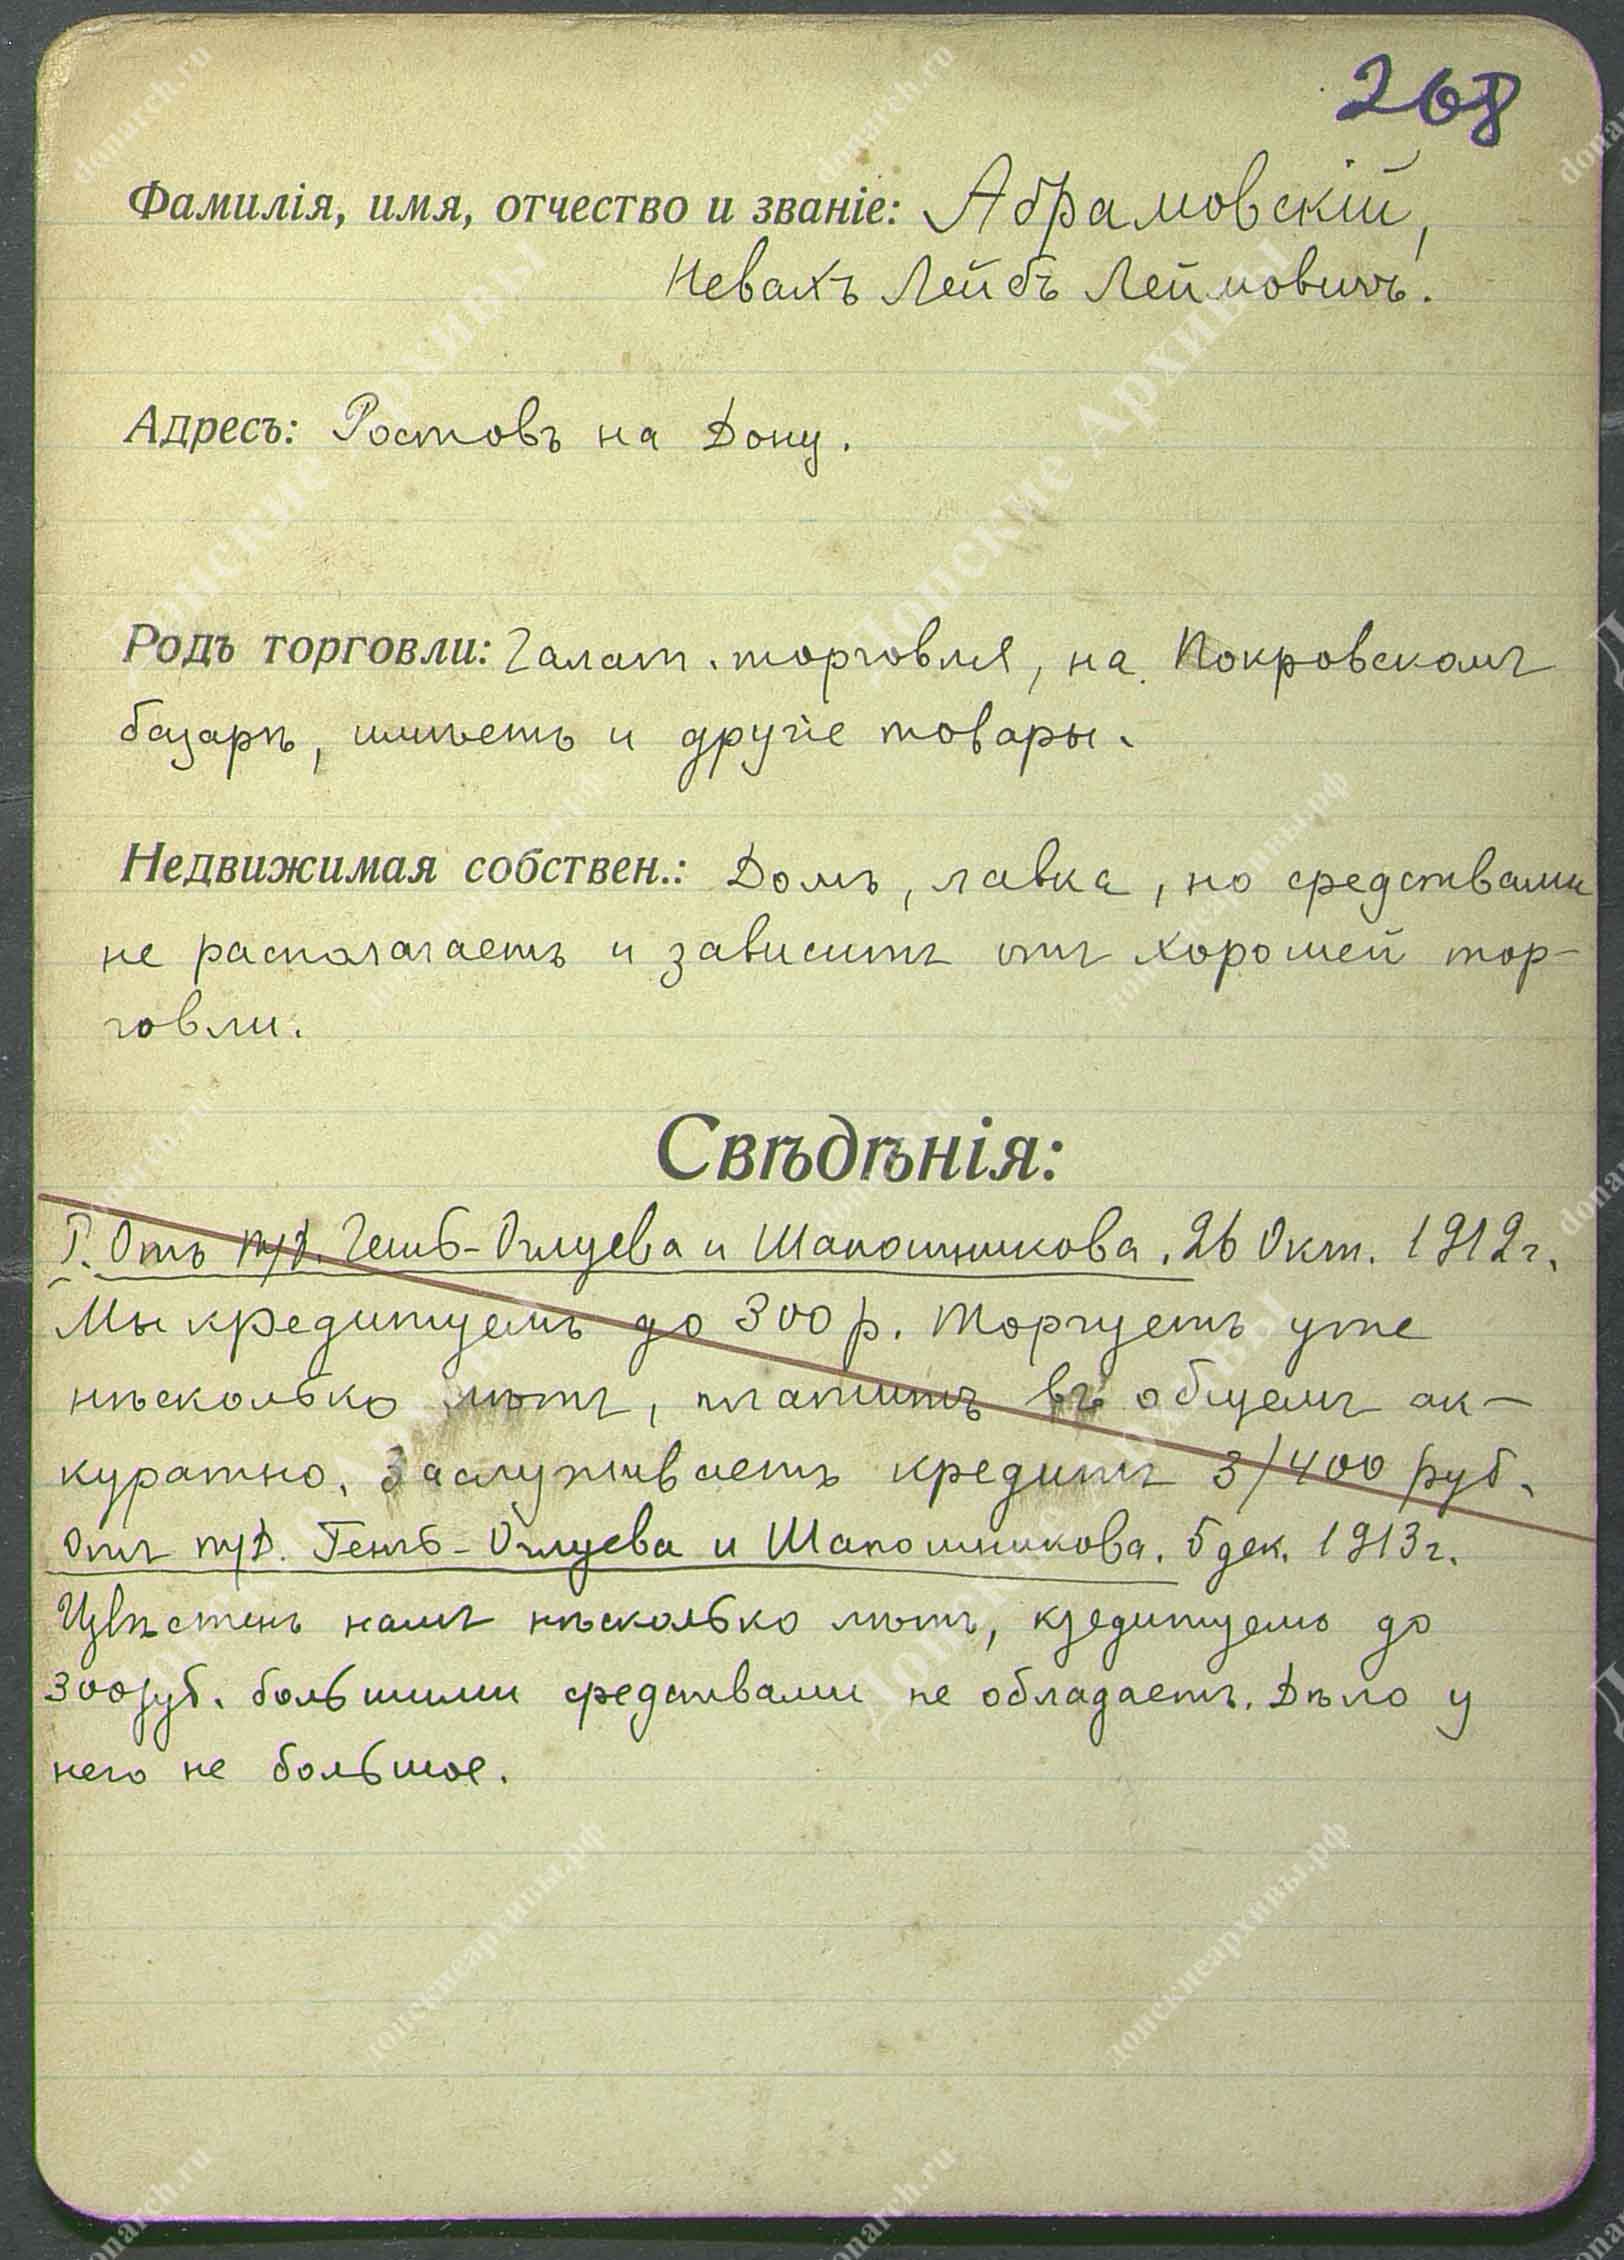 268
Фамилія, имя, отчество и званіе: Абрамовскій,
Невахъ Лейбъ Леймовичъ.
Адресъ: Ростовъ на Дону.
Родъ торговли: Галант. торговля, на Покровскомъ
базарѣ, имѣетъ и другіе товары.
Недвижимая собствен.: Домъ, лавка, но средствами
не располагаетъ и зависитъ отъ хорошей тор-
говли.
Свѣдѣнія:
Р. Отъ т/д. Генчъ-Оглуева и Шапошникова. 26 Окт. 1912 г.
Мы кредитуемъ до 300 р. Торгуетъ уже
нѣсколько лѣтъ, платитъ въ общемъ ак-
куратно. Заслуживаетъ кредитъ 3/400 руб.
Отъ т/д. Генчъ-Оглуева и Шапошникова. 5 дек. 1913 г.
Извѣстенъ намъ нѣсколько лѣтъ, кредитуемъ до
300 руб. большими средствами не обладаетъ. Дѣло у
него не большое.